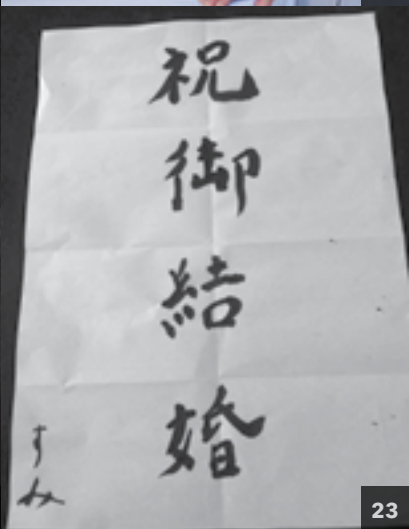 祝御結婚
すみ
23